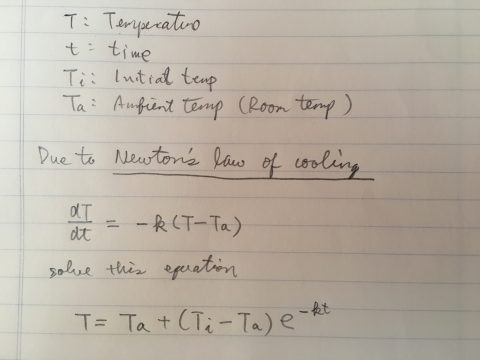 T: Temperature
t: time
Ti: Initial temp
Ta: Ambient temp (Room temp)
Due to Newton's law of cooling
dT/dt = -k(T-Ta)
solve this equation
T = Ta + (Ti - Ta) e^-kt